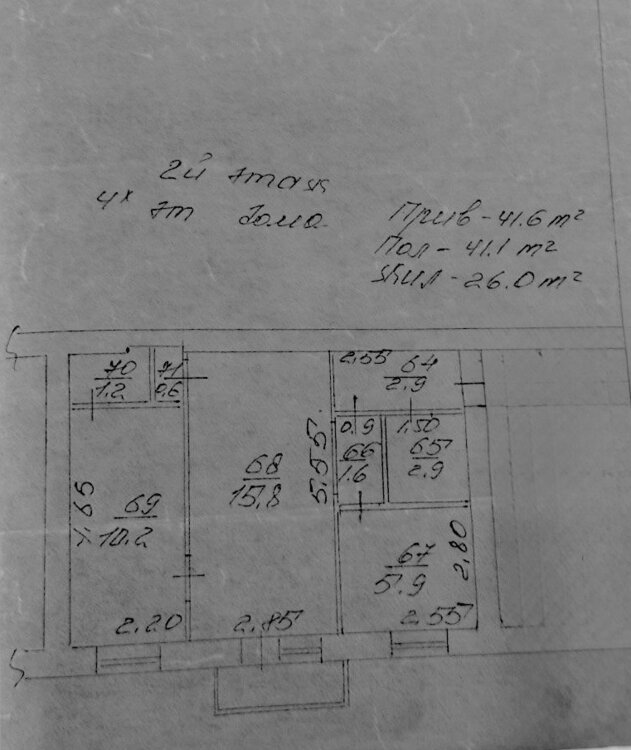 2й этаж
4х эт дома
Прив - 41.6 m²
Пол - 41.1 m²
Жил - 26.0 m²
70
1.2
71
0.6
2,55
64
2.9
0.9
66
1.6
1,50
65
2.9
68
15.8
5.55
69
10.2
4.65
67
5.9
2,80
2.20
2.85
2.55